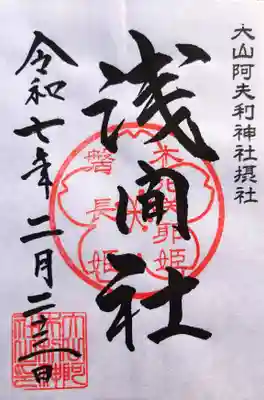 大山阿夫利神社摂社
浅間社
木花咲耶姫
磐長姫
令和七年二月二十三日